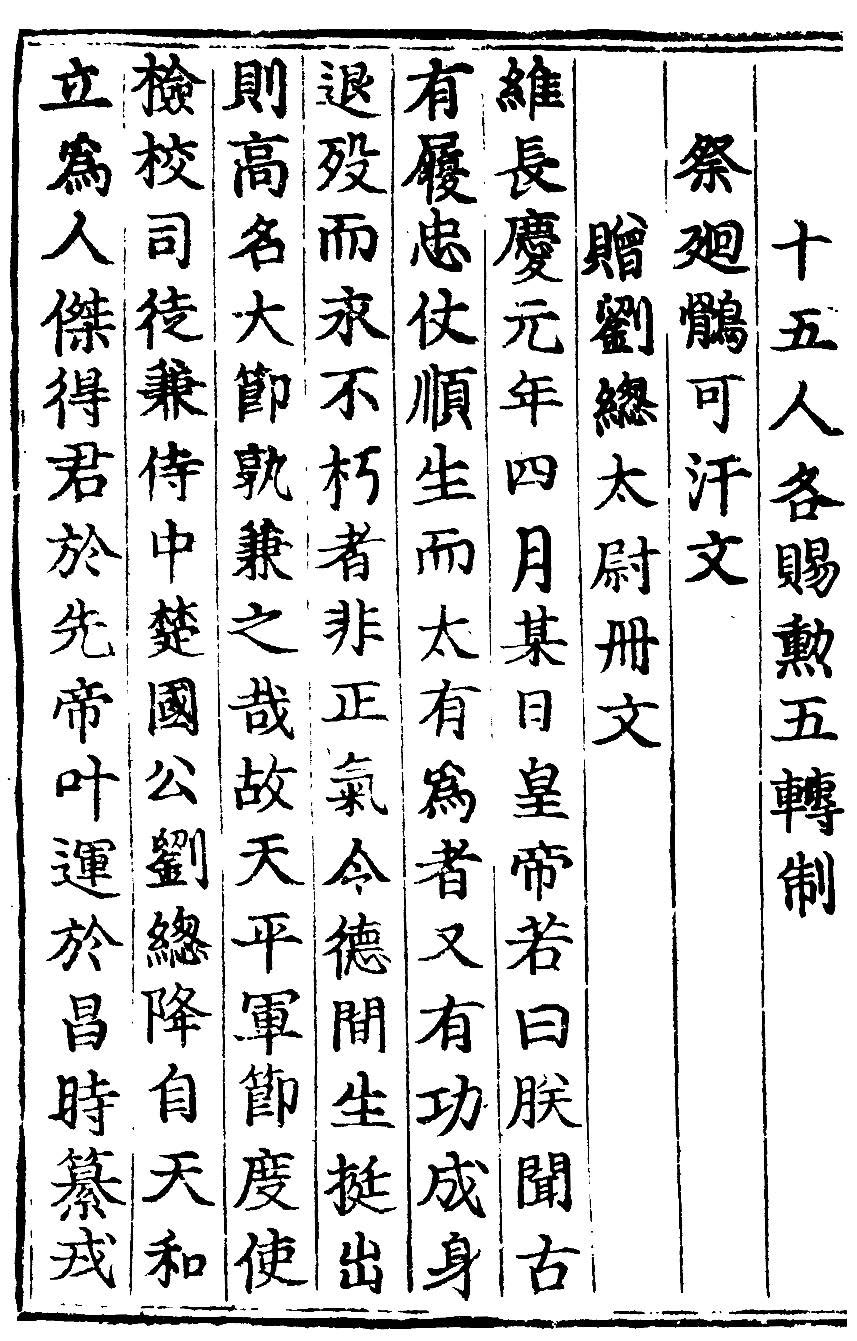 十五人各賜勲五轉制
祭廻鶻可汗文
贈劉緫太尉冊文
維長慶元年四月某日皇帝若曰朕聞古
有履忠仗順生而太有爲者又有功成身
退歿而永不朽者非正氣令德間生挺出
則高名大節孰兼之哉故天平軍節度使
檢校司徒兼侍中楚國公劉緫降自天和
立爲人傑得君於先帝叶運於昌時纂戎